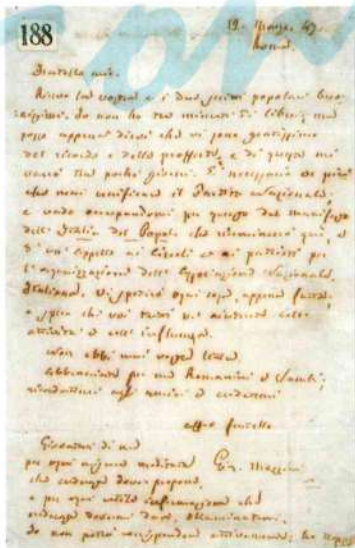 188
19. Marzo. 49.
Roma.
Fratello mio.
Ricevo la vostra e i due primi popolari
Io non ho tre minuti di liberi; ma
posso appena dirvi che vi sono gratissimo
del ricordo e delle profferte, e di
varrò tra pochi giorni. È necessario
che noi unifichiamo il Partito Nazionale:
e vado occupandomi per questo del manifesto
dell' Italia del Popolo che ricomincerà qui, e
di un' appello ai Circoli e ai
l'organizzazione dell' Associazione Nazionale
Italiana. Vi spedirò ogni cosa, appena fatta,
e spero che voi tutti m' aiuterete coll'
attività e coll' influenza.
Non ebbi mai vostra lettera.
Abbracciate per me Romanini e
ricordatemi agli amici e credetemi
fratello
Gius. Mazzini
Giovatevi di me
per ogni
che crediate dover proporre,
e per ogni utile informazione che
crediate dovermi dare,
Io non potrò rispondere attivamente: ma